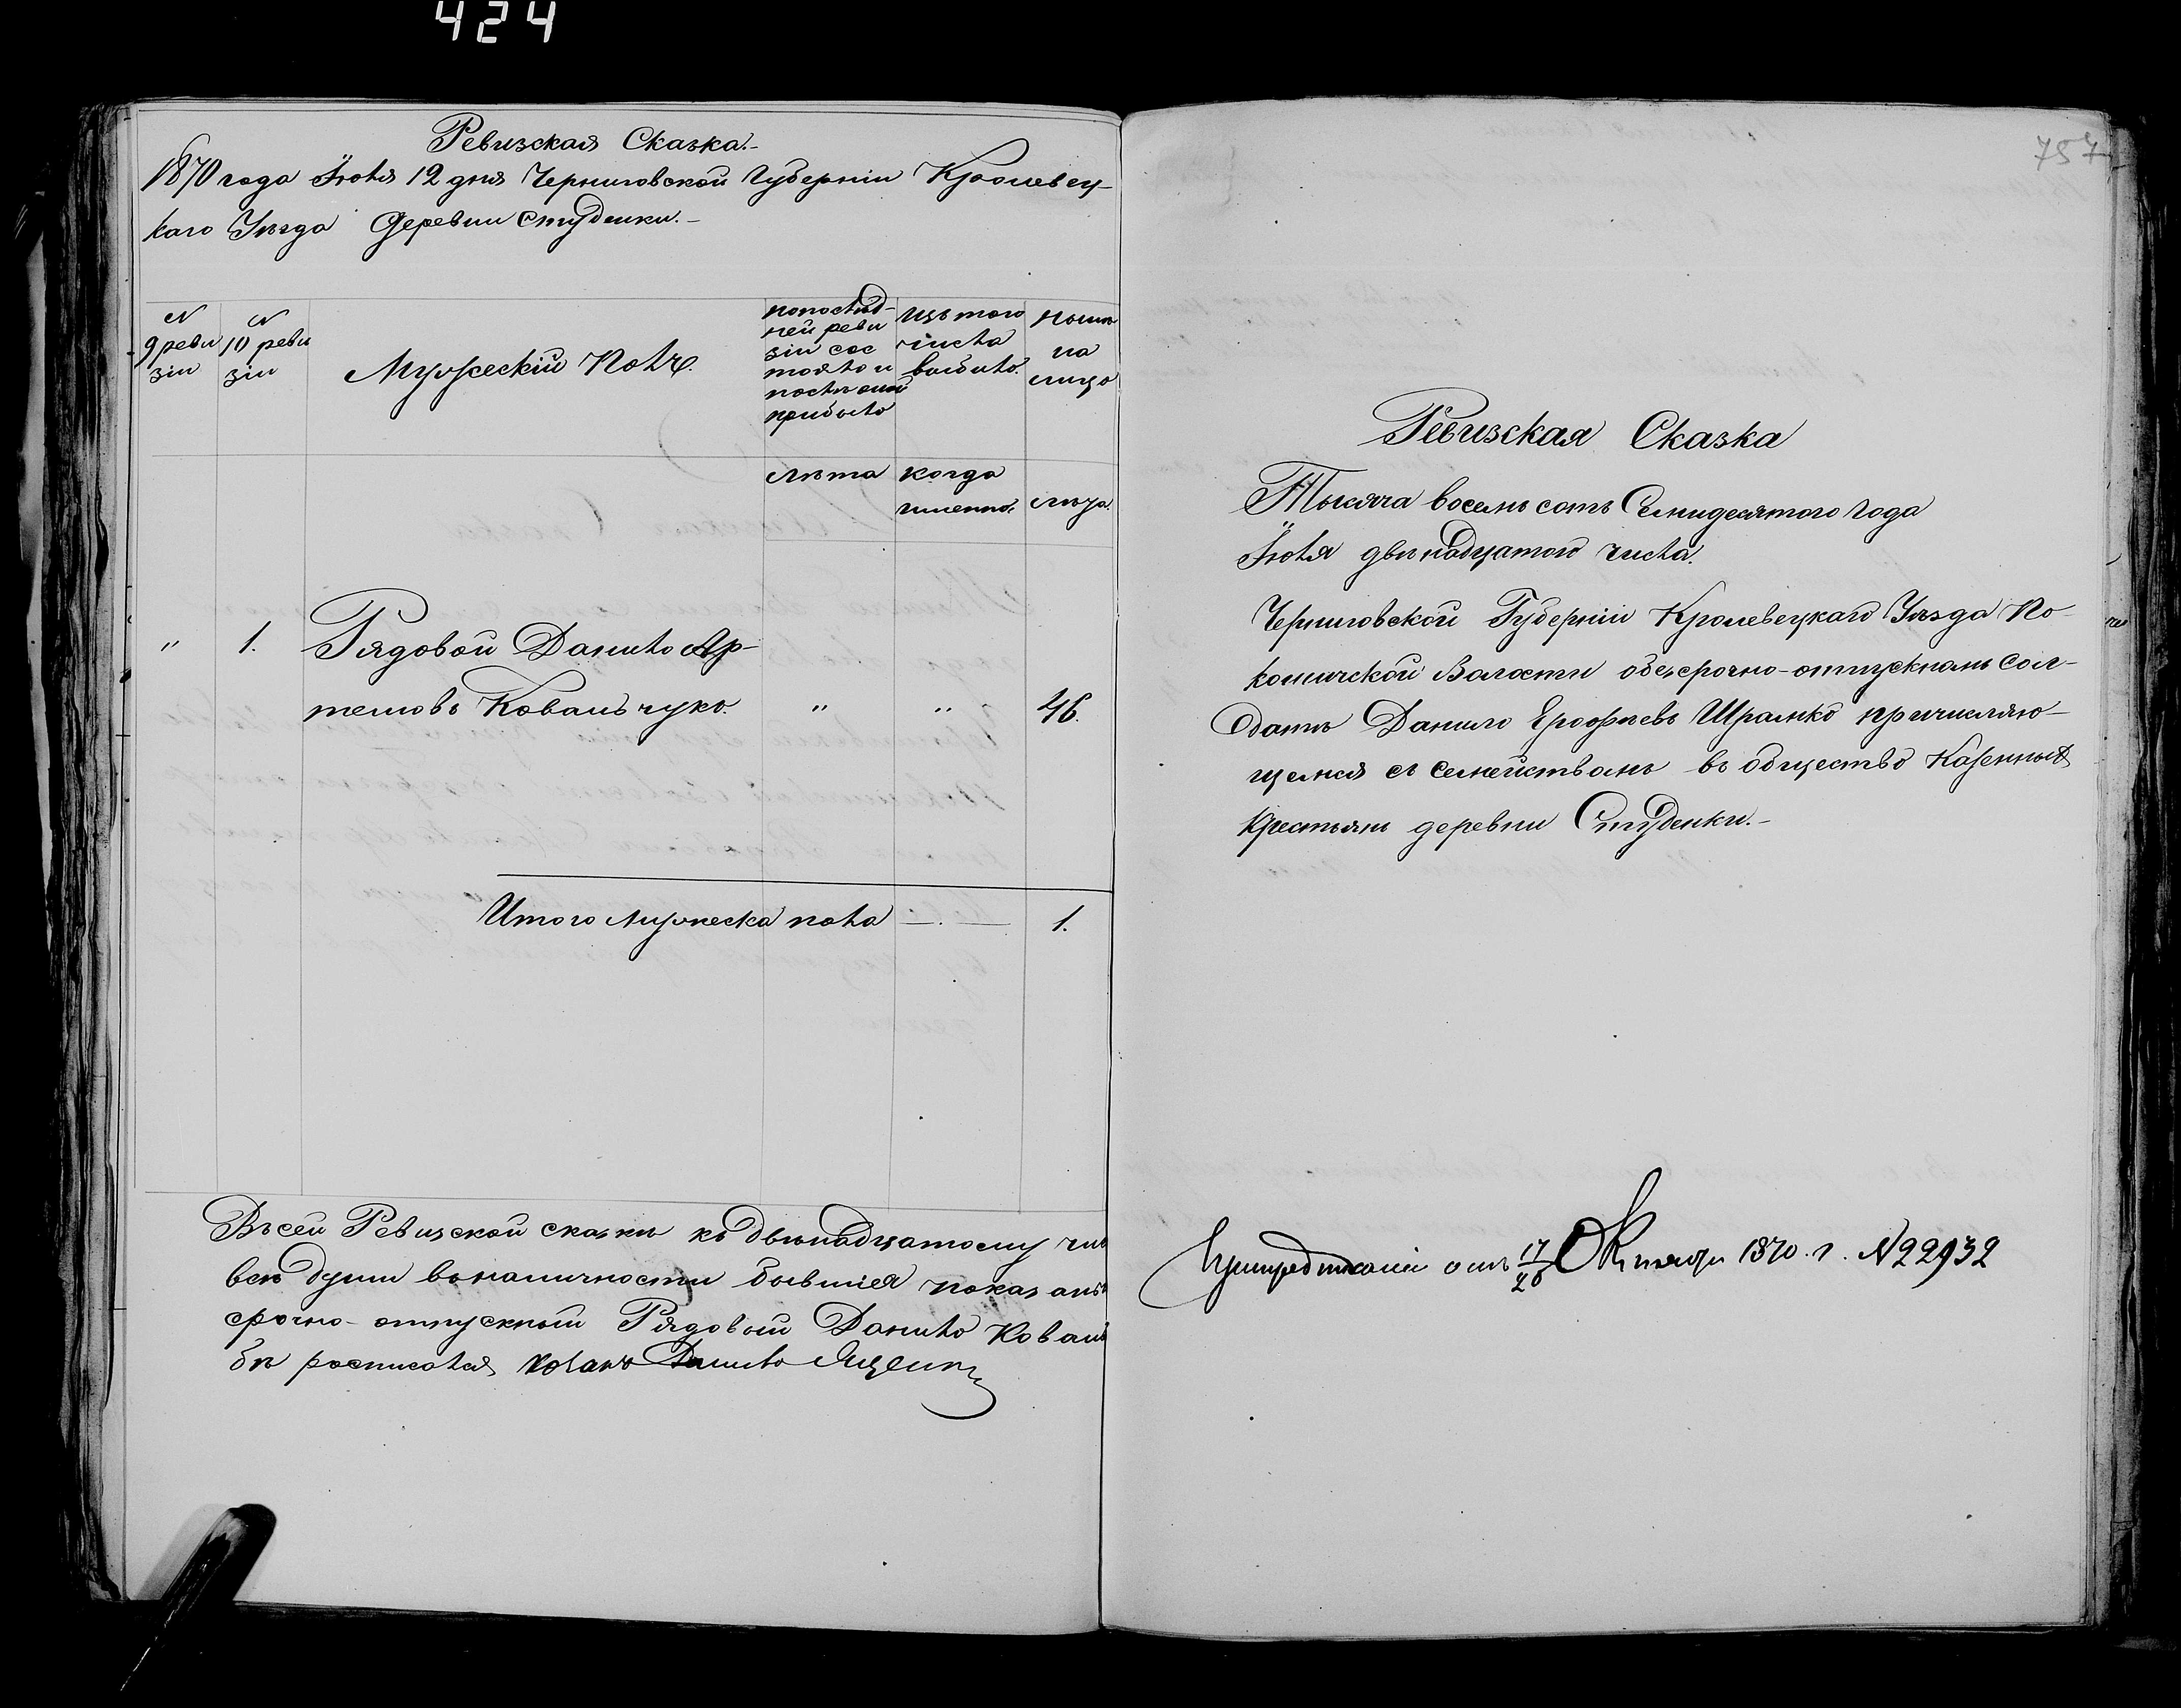 424
Ревизская Сказка.
1870 года Іюля 12 дня Черниговской Губерніи Кролевец-
каго Уезда деревни Студенки.
№ 9 реви зіи
№ 10 реви зіи
Мужескій Полъ.
по послѣд-
ней реви
зіи сос
тояло и
послѣ оной
прибыло
изъ того
числа
выбыло.
нынѣ
на
лицо
лѣта
когда
именно.
лѣта.
" 1. Рядовой Данило Ар-
темовъ Ковальчукъ. " " 46.
Итого мужеска пола —.— 1.
Въ сей Ревизской сказкѣ къ двѣнадцатому чи
всѣ души въ наличности бывшіея показаны
срочно-отпускный Рядовый Данило Коваль
бѣ росписался
757
Ревизская Сказка
Тысяча восемь сотъ Семидесятого года
Іюля двѣнадцатого числа.
Черниговской Губерніи Кролевецкаго Уѣзда По-
кошичской Волости обезсрочно-отпускнымъ сол-
датъ Данило Ерофѣевъ Шрамко причисляю-
щемся съ семействомъ въ общество Казенныхъ
Крестьянъ деревни Студенки.
отъ 17/26 Октября 1870. г. № 22932